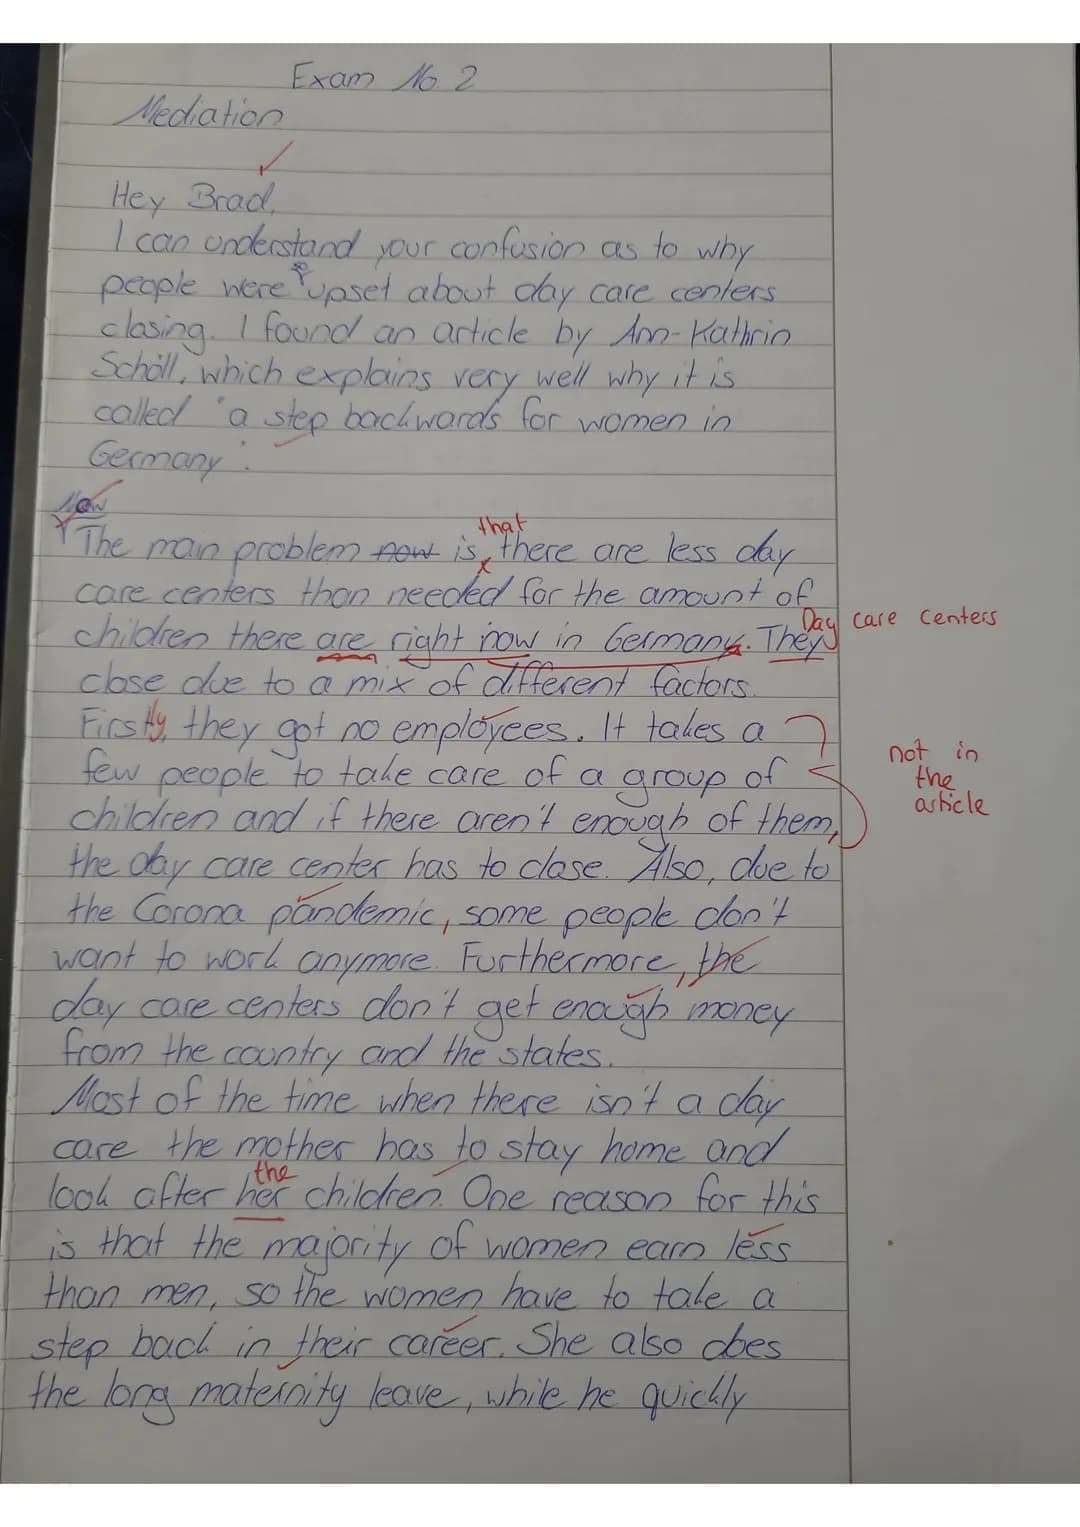 Exam No 2
Mediation
Hey Brad,
I can understand your confusion as to why
people were upset about day care centers
closing. I found an article by Ann-Kathrin
Schöll, which explains very well why it is
called "a step backwards for women in
Germany".
Now
that
The main problem now is there are less day
care centers than needed for the amount of
Day care centers
children there are right now in Germany. They
close due to a mix of different factors.
Firstly, they got no employees. It takes a
few people to take care of a group of
not in
the
article
children and if there aren't enough of them,
the day care center has to close. Also, due to
the Corona pandemic, some people don't
want to work anymore. Furthermore, the
day care centers don't get enough money
from the country and the states.
Most of the time when there isn't a day
care the mother has to stay home and
the
look after her children. One reason for this
is that the majority of women earn less
than men, so the women have to take a
step back in their career. She also does
the long maternity leave, while he quickly